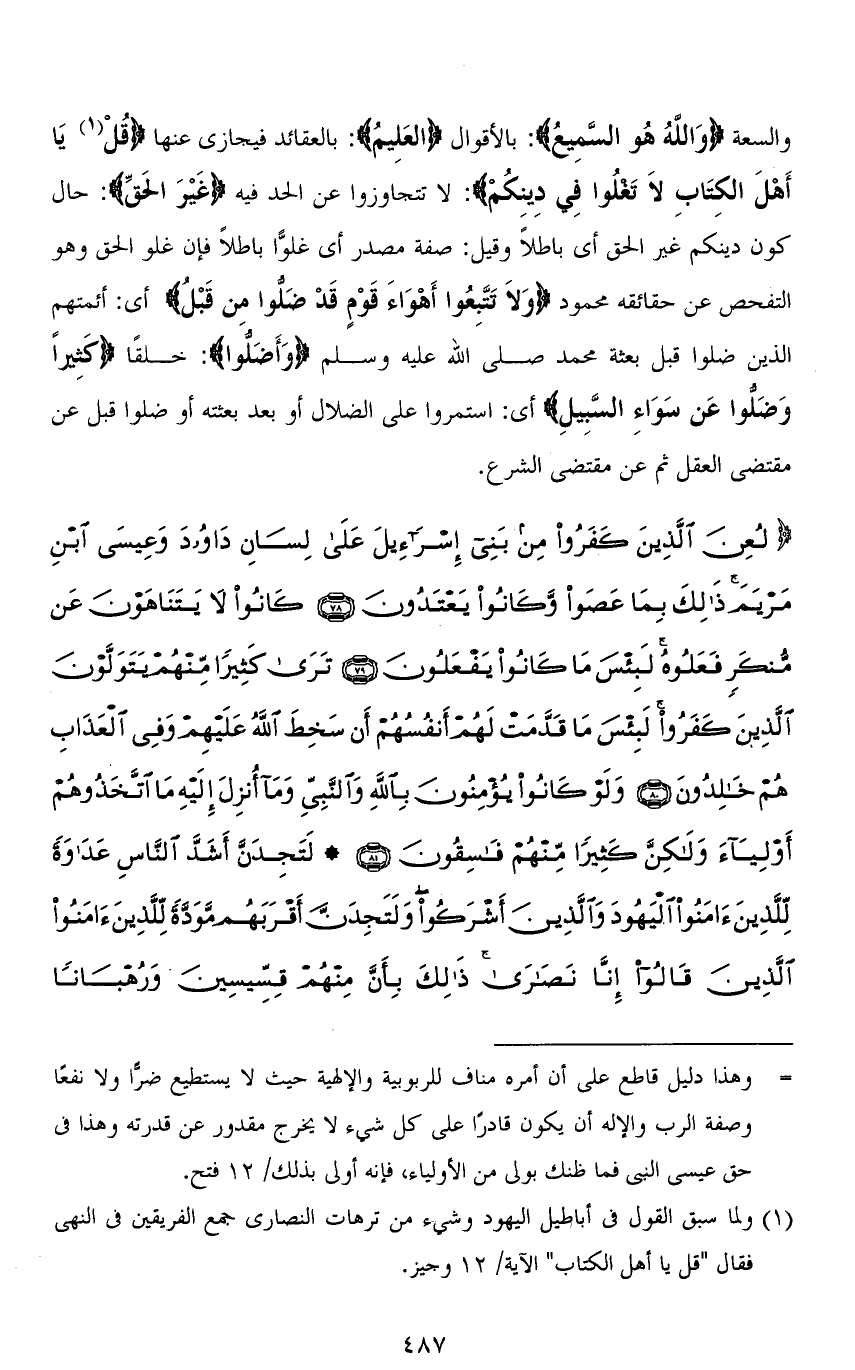 والسعة ﴿وَاللَّهُ هُوَ السَّمِيعُ﴾: بالأقوال ﴿العَلِيمُ﴾: بالعقائد فيجازى عنها ﴿قُلْ(١) يَا
أَهْلَ الكِتَابِ لاَ تَغْلُوا فِي دِينِكُمْ﴾: لا تتجاوزوا عن الحد فيه ﴿غَيْرَ الحَقِّ﴾: حال
كون دينكم غير الحق أى باطلاً وقيل: صفة مصدر أى غلوًّا باطلاً فإن غلو الحق وهو
التفحص عن حقائقه محمود ﴿وَلاَ تَتَّبِعُوا أَهْوَاءَ قَوْمٍ قَدْ ضَلُّوا مِن قَبْلُ﴾ أى: أئمتهم
الذين ضلوا قبل بعثة محمد صلى الله عليه وسلم ﴿وَأَضَلُّوا﴾: خلقًا ﴿كَثِيراً
وَضَلُّوا عَن سَوَاءِ السَّبِيلِ﴾ أى: استمروا على الضلال أو بعد بعثته أو ضلوا قبل عن
مقتضى العقل ثم عن مقتضى الشرع.
﴿ لُعِنَ ٱلَّذِينَ كَفَرُوا۟ مِنۢ بَنِىٓ إِسْرَٰٓءِيلَ عَلَىٰ لِسَانِ دَاوُۥدَ وَعِيسَى ٱبْنِ
مَرْيَمَ ۚ ذَٰلِكَ بِمَا عَصَوا۟ وَّكَانُوا۟ يَعْتَدُونَ ٧٨ كَانُوا۟ لَا يَتَنَاهَوْنَ عَن
مُّنكَرٍ فَعَلُوهُ ۚ لَبِئْسَ مَا كَانُوا۟ يَفْعَلُونَ ٧٩ تَرَىٰ كَثِيرًا مِّنْهُمْ يَتَوَلَّوْنَ
ٱلَّذِينَ كَفَرُوا۟ ۚ لَبِئْسَ مَا قَدَّمَتْ لَهُمْ أَنفُسُهُمْ أَن سَخِطَ ٱللَّهُ عَلَيْهِمْ وَفِى ٱلْعَذَابِ
هُمْ خَـٰلِدُونَ ٨٠ وَلَوْ كَانُوا۟ يُؤْمِنُونَ بِٱللَّهِ وَٱلنَّبِىِّ وَمَآ أُنزِلَ إِلَيْهِ مَا ٱتَّخَذُوهُمْ
أَوْلِيَآءَ وَلَـٰكِنَّ كَثِيرًا مِّنْهُمْ فَـٰسِقُونَ ٨١ * لَتَجِدَنَّ أَشَدَّ ٱلنَّاسِ عَدَٰوَةً
لِّلَّذِينَ ءَامَنُوا۟ ٱلْيَهُودَ وَٱلَّذِينَ أَشْرَكُوا۟ ۖ وَلَتَجِدَنَّ أَقْرَبَهُم مَّوَدَّةً لِّلَّذِينَ ءَامَنُوا۟
ٱلَّذِينَ قَالُوٓا۟ إِنَّا نَصَـٰرَىٰ ۚ ذَٰلِكَ بِأَنَّ مِنْهُمْ قِسِّيسِينَ وَرُهْبَانًا
= وهذا دليل قاطع على أن أمره مناف للربوبية والإلهية حيث لا يستطيع ضرًّا ولا نفعًا
وصفة الرب والإله أن يكون قادرًا على كل شيء لا يخرج مقدور عن قدرته وهذا فى
حق عيسى النبى فما ظنك بولى من الأولياء، فإنه أولى بذلك/ ١٢ فتح.
(١) ولما سبق القول فى أباطيل اليهود وشيء من ترهات النصارى جمع الفريقين فى النهى
فقال "قل يا أهل الكتاب" الآية/ ١٢ وجيز.
٤٨٧